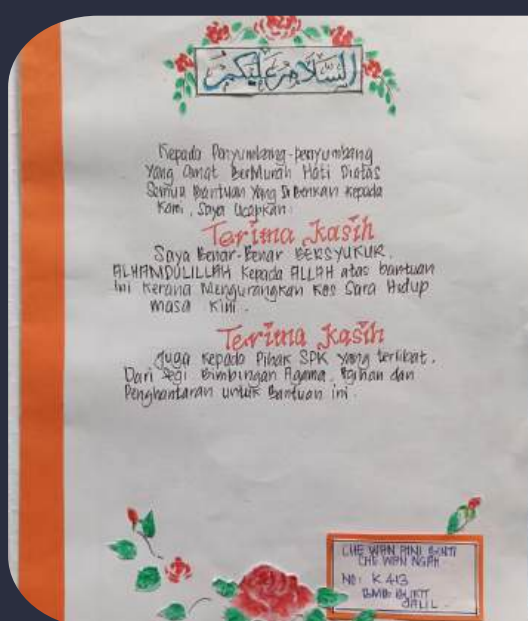 السلام عليكم
Kepada Penyumbang-penyumbang
Yang Amat BerMurah Hati Diatas
Semua Bantuan Yang Di Berikan Kepada
Kami, Saya Ucapkan:
Terima Kasih
Saya Benar-Benar BERSYUKUR.
ALHAMDULILLAH Kepada ALLAH atas bantuan
ini Kerana Mengurangkan Kos Sara Hidup
masa Kini.
Terima Kasih
Juga Kepada Pihak SPK yang terlibat.
Dari Segi Bimbingan Agama, dan
Penghantaran untuk Bantuan ini.
CHE WAN BINTI
CHE WAN NGAH
NO: K 413
BUKIT
JALIL